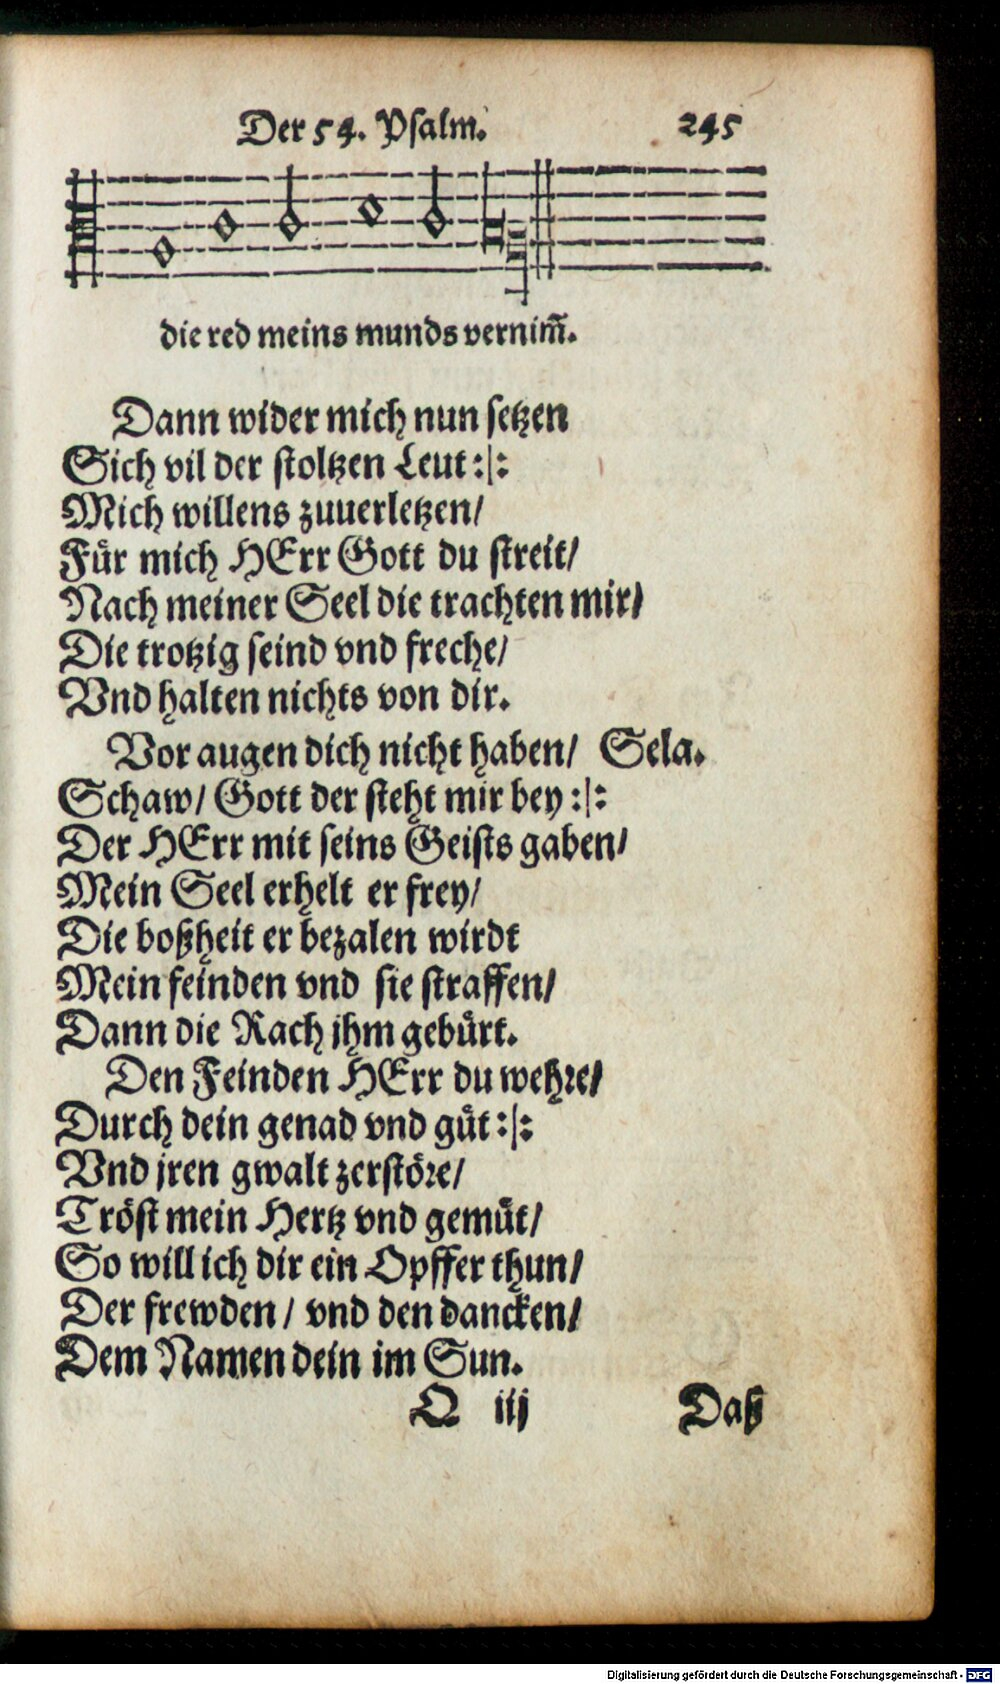 Der 54. Psalm. 245
die red meins munds vernim̃.
Dann wider mich nun setzen
Sich vil der stoltzen Leut :|:
Mich willens zuuerletzen/
Für mich HErr Gott du streit/
Nach meiner Seel die trachten mir/
Die trotzig seind vnd freche/
Vnd halten nichts von dir.
Vor augen dich nicht haben/ Sela.
Schaw/ Gott der steht mir bey :|:
Der HErr mit seins Geists gaben/
Mein Seel erhelt er frey/
Die boßheit er bezalen wirdt
Mein feinden vnd sie straffen/
Dann die Rach jhm gebürt.
Den Feinden HErr du wehre/
Durch dein genad vnd güt :|:
Vnd jren gwalt zerstöre/
Tröst mein Hertz vnd gemüt/
So will ich dir ein Opffer thun/
Der frewden/ vnd den dancken/
Dem Namen dein im Sun.
Q iij Daß
Digitalisierung gefördert durch die Deutsche Forschungsgemeinschaft - DFG